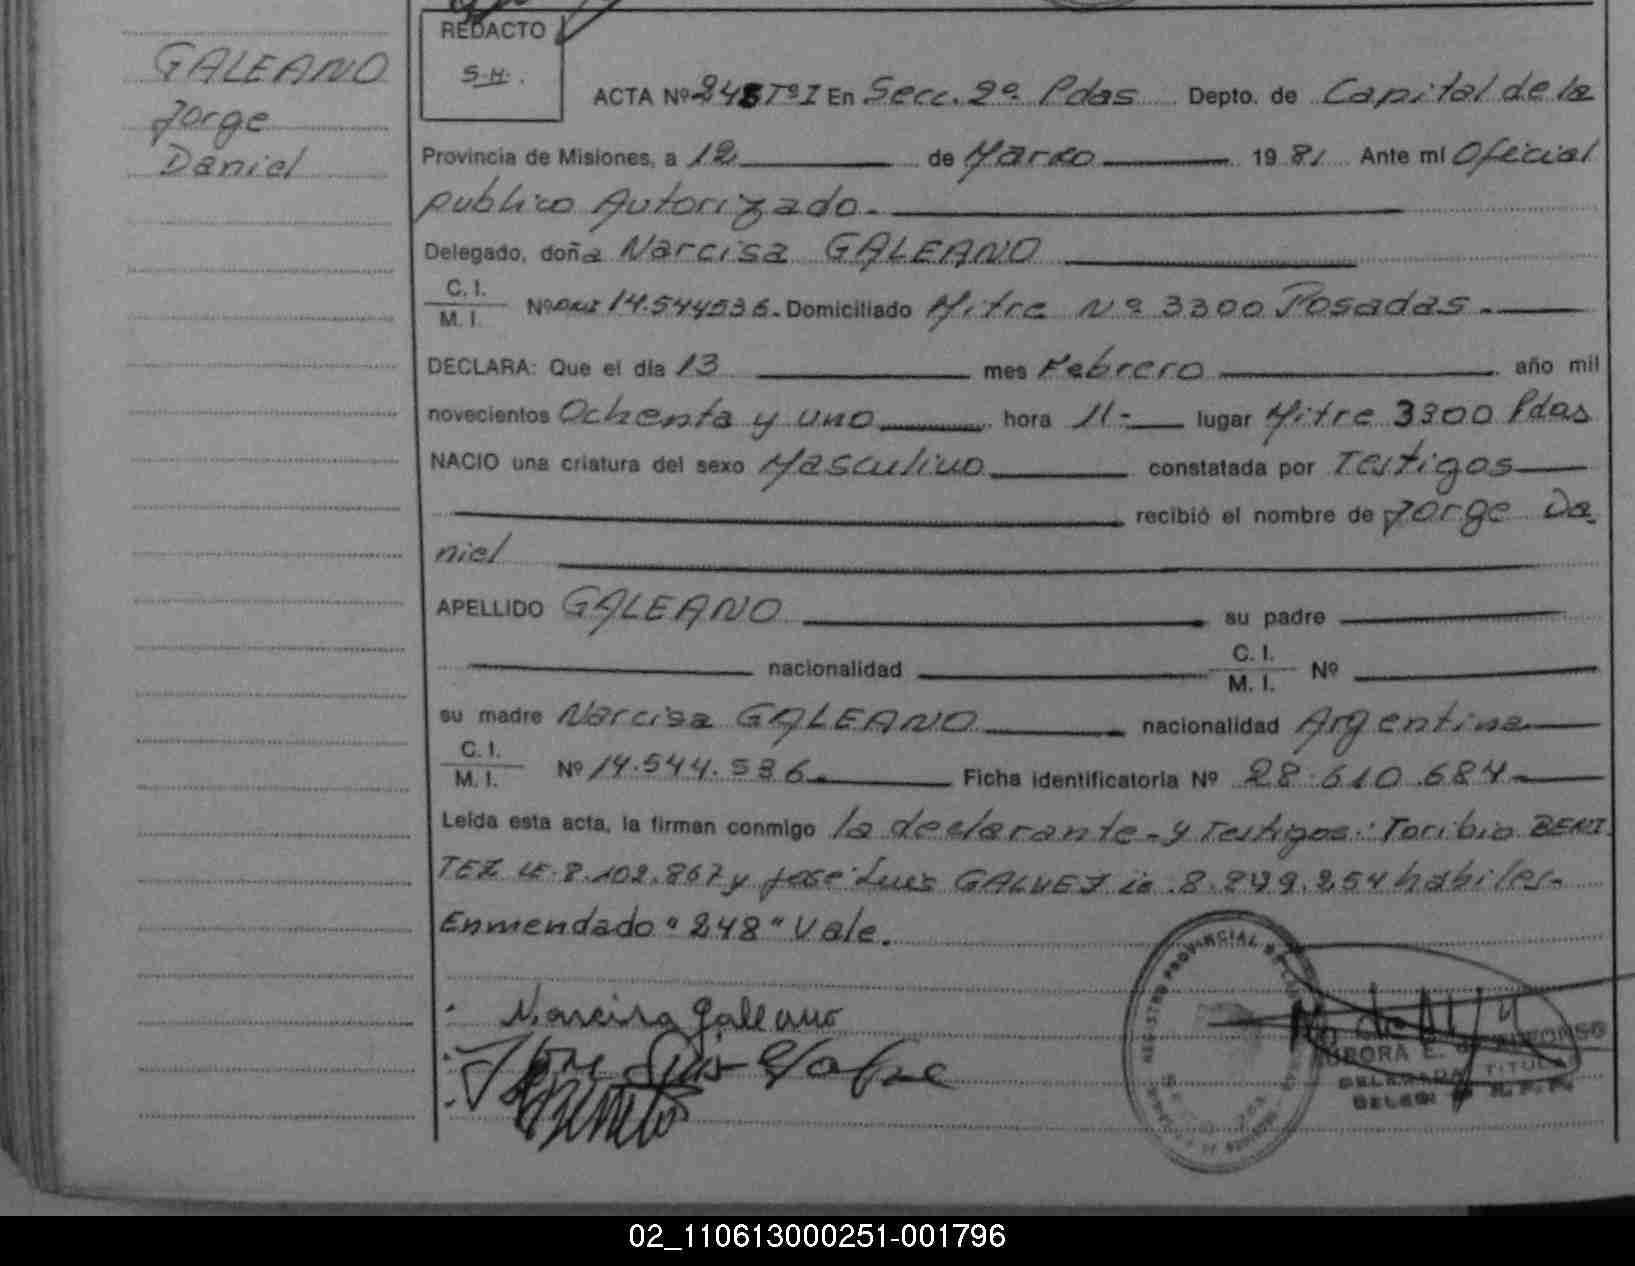 GALEANO
Jorge
Daniel
REDACTO
S.H.
ACTA Nº 248 TºI En Secc. 2º Pdas Depto. de Capital de la
Provincia de Misiones, a 12 de Marzo 19 81 Ante mi Oficial
publico Autorizado.
Delegado, doña Narcisa GALEANO
C. I.
M. I. Nº DNI 14.544536. Domiciliado Mitre Nº 3300 Posadas.
DECLARA: Que el dia 13 mes Febrero año mil
novecientos Ochenta y uno hora 11- lugar Mitre 3300 Pdas
NACIO una criatura del sexo Masculino constatada por Testigos
recibió el nombre de Jorge Da
niel
APELLIDO GALEANO su padre
nacionalidad C. I.
M. I. Nº
su madre Narcisa GALEANO nacionalidad Argentina
C. I.
M. I. Nº 14.544.536. Ficha identificatoria Nº 28.610.684
Leída esta acta, la firman conmigo la declarante - y Testigos: Toribio BENI
TEZ LE. 8.102.867 y José Luis GALVEZ Le. 8.849.254 habiles.
Enmendado "248" Vale.
Narcisa Galeano
REGISTRO PROVINCIAL DE LAS
DELEGADA TITULAR
02_110613000251-001796